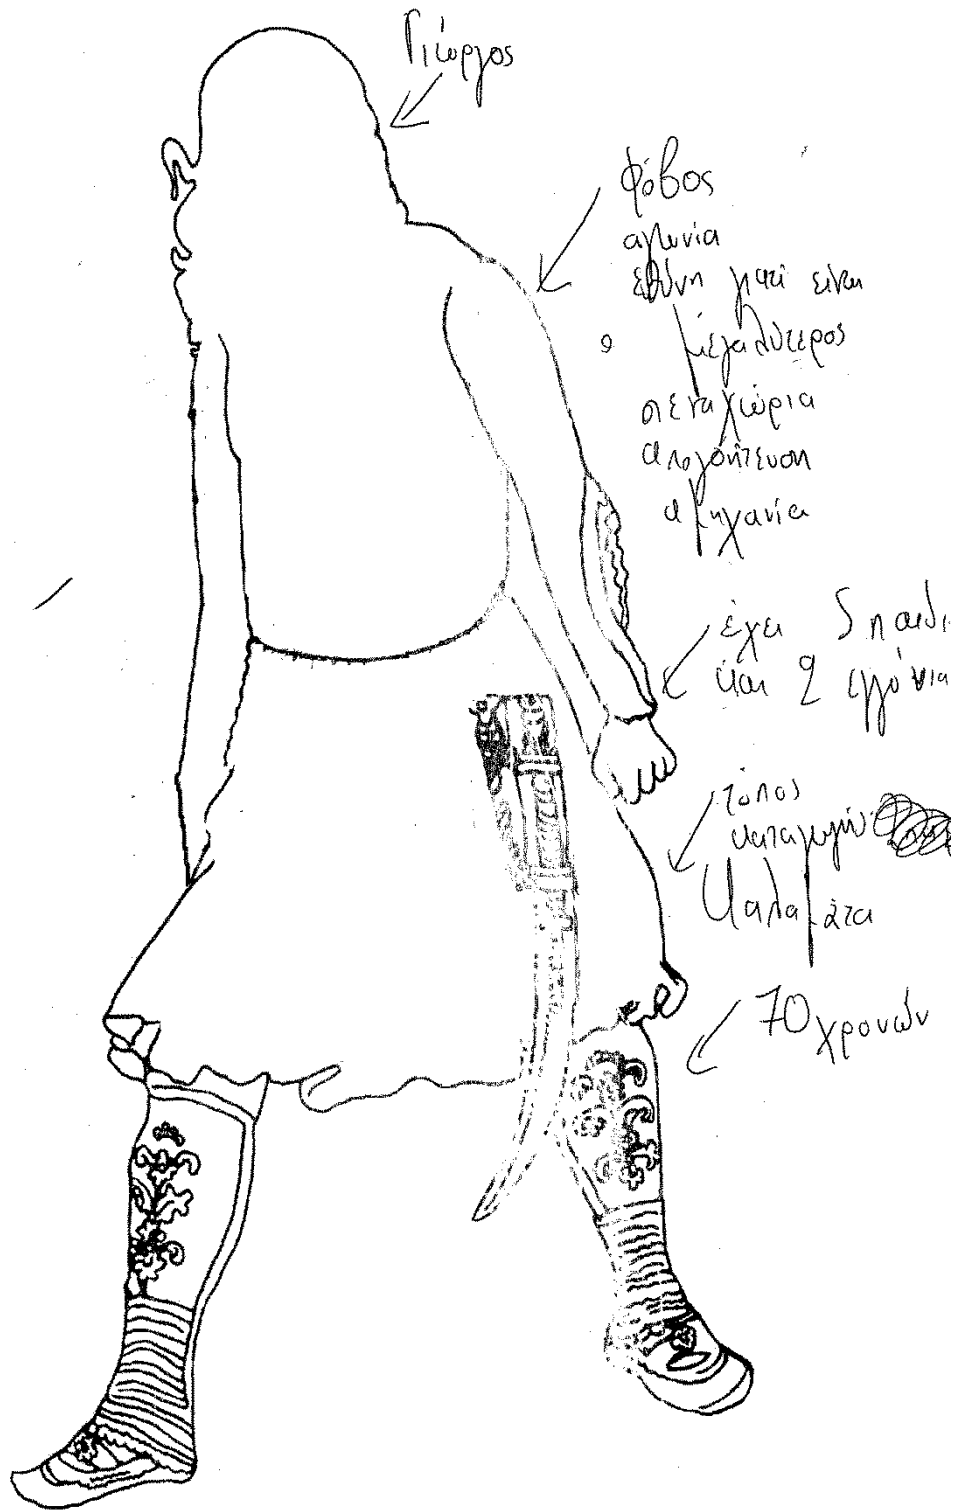 Γιώργος
φόβος
αγωνία
εθύνη γιατί είναι
ο μεγαλύτερος
στεναχώρια
απογοήτευση
αμηχανία
έχει 5 παιδι
και 2 εγγόνια
τόπος
καταγωγής
Καλαμάτα
70 χρονών